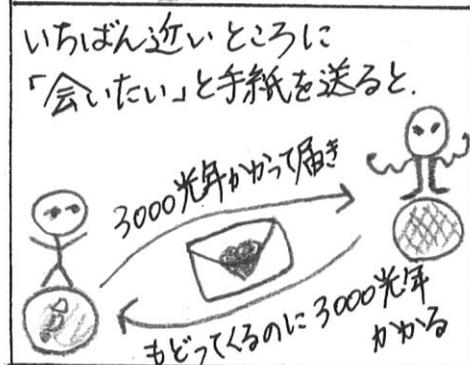 いちばん近いところに
「会いたい」と手紙を送ると.
3000光年かかって届き
もどってくるのに3000光年
かかる